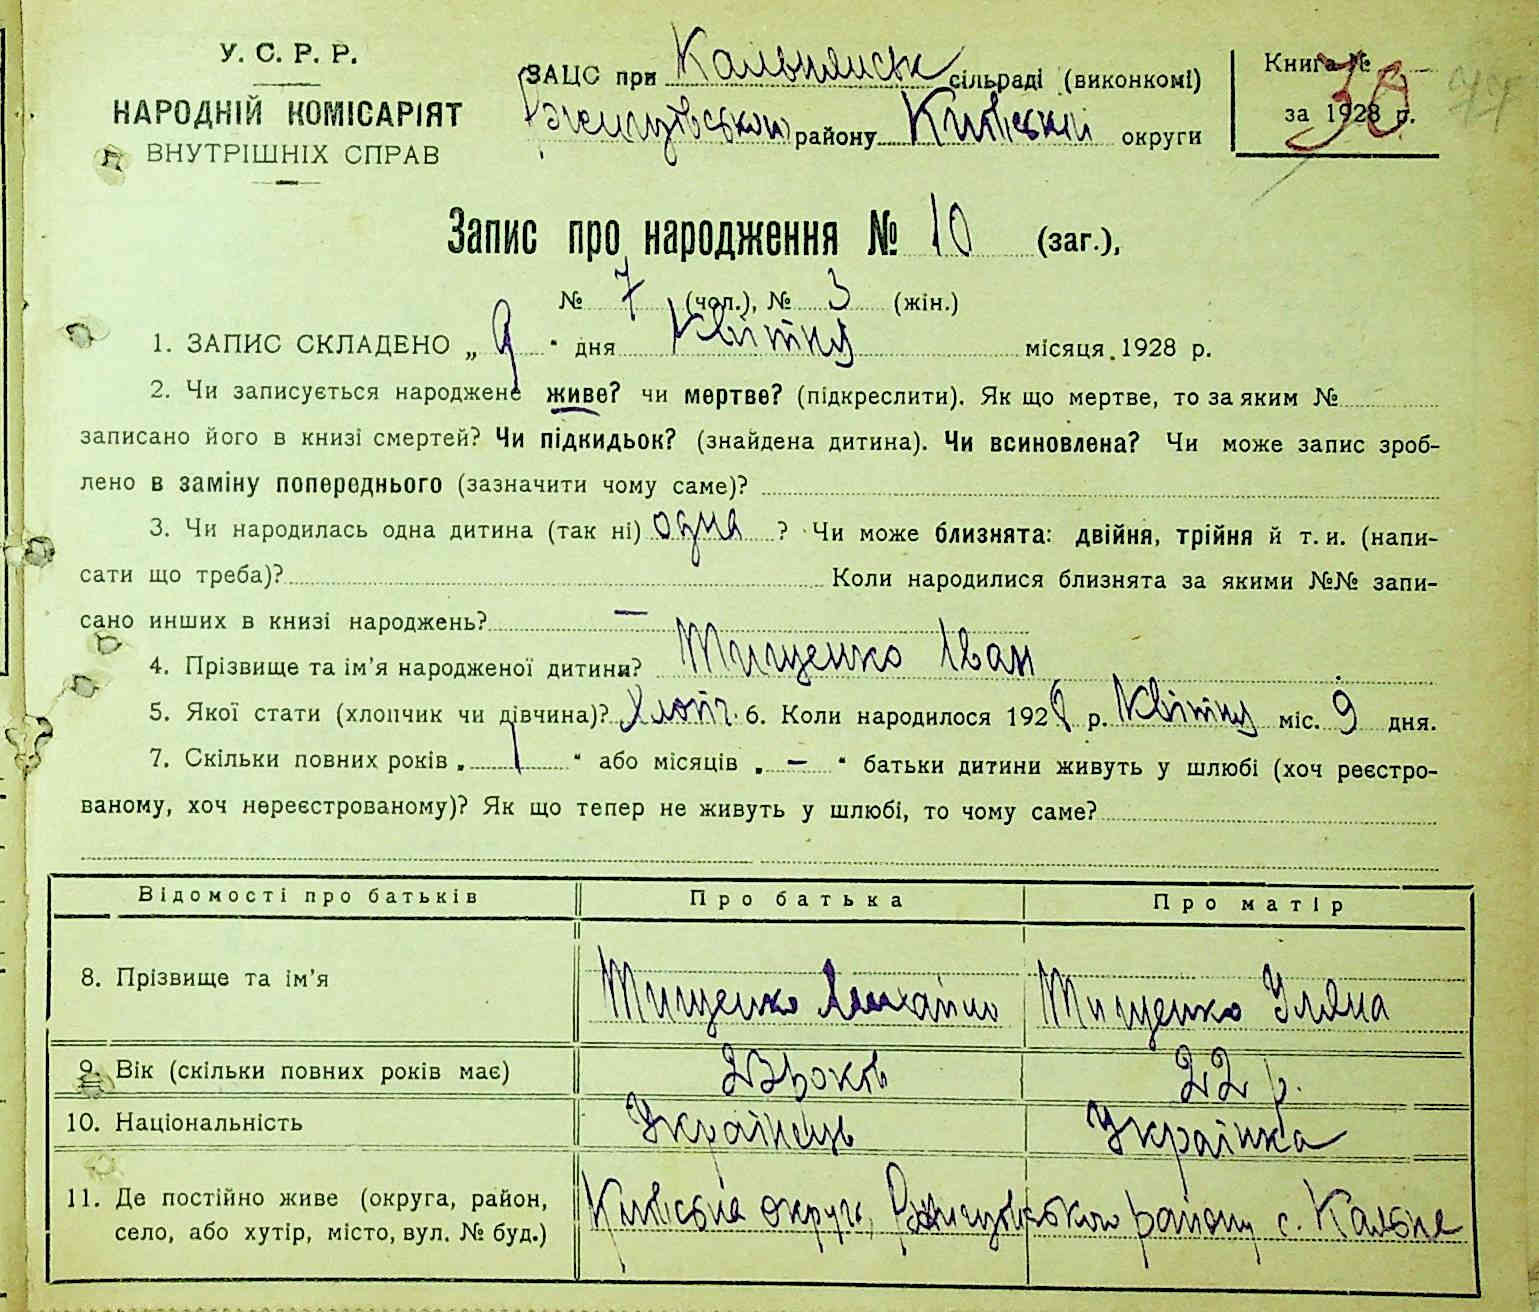 У. С. Р. Р.
НАРОДНІЙ КОМІСАРІЯТ
ВНУТРІШНІХ СПРАВ
ЗАЦС при Кальнянськ сільраді (виконкомі)
Ржищівського району Київській округи
Книга № 30
за 1928 р.
Запис про народження № 10 (заг.),
№ 7 (чол.), № 3 (жін.)
1. ЗАПИС СКЛАДЕНО „ 9 “ дня Квітня місяця 1928 р.
2. Чи записується народжене живе? чи мертве? (підкреслити). Як що мертве, то за яким №
записано його в книзі смертей? Чи підкидьок? (знайдена дитина). Чи всиновлена? Чи може запис зроб-
лено в заміну попереднього (зазначити чому саме)?
3. Чи народилась одна дитина (так ні) одна ? Чи може близнята: двійня, трійня й т. и. (напи-
сати що треба)? Коли народилися близнята за якими №№ запи-
сано инших в книзі народжень? —
4. Прізвище та ім'я народженої дитини? Тищенко Іван
5. Якої стати (хлопчик чи дівчина)? Хлопч. 6. Коли народилося 1928 р. Квітня міс. 9 дня.
7. Скільки повних років „ 1 “ або місяців „ — “ батьки дитини живуть у шлюбі (хоч реєстро-
ваному, хоч нереєстрованому)? Як що тепер не живуть у шлюбі, то чому саме?
Відомості про батьків Про батька Про матір
8. Прізвище та ім'я Тищенко Михайло Тищенко Уляна
9. Вік (скільки повних років має) 23 років 22 р.
10. Національність Українець Українка
11. Де постійно живе (округа, район,
село, або хутір, місто, вул. № буд.) Київська округа, Ржищівського району с. Кальне